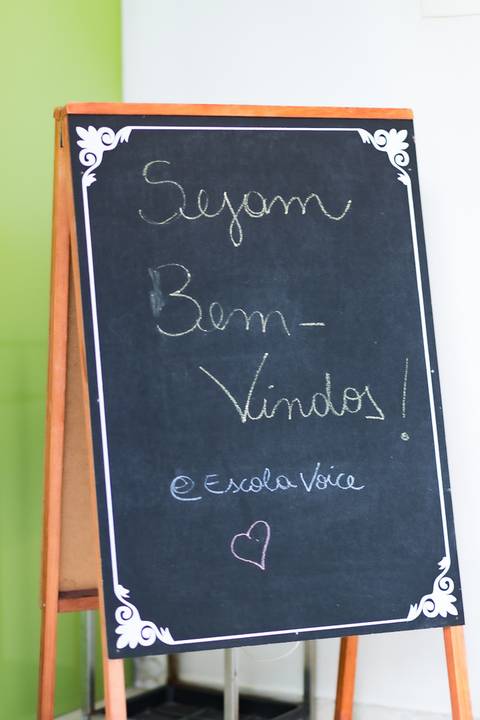 Sejam
Bem-
Vindos!
@EscolaVoice